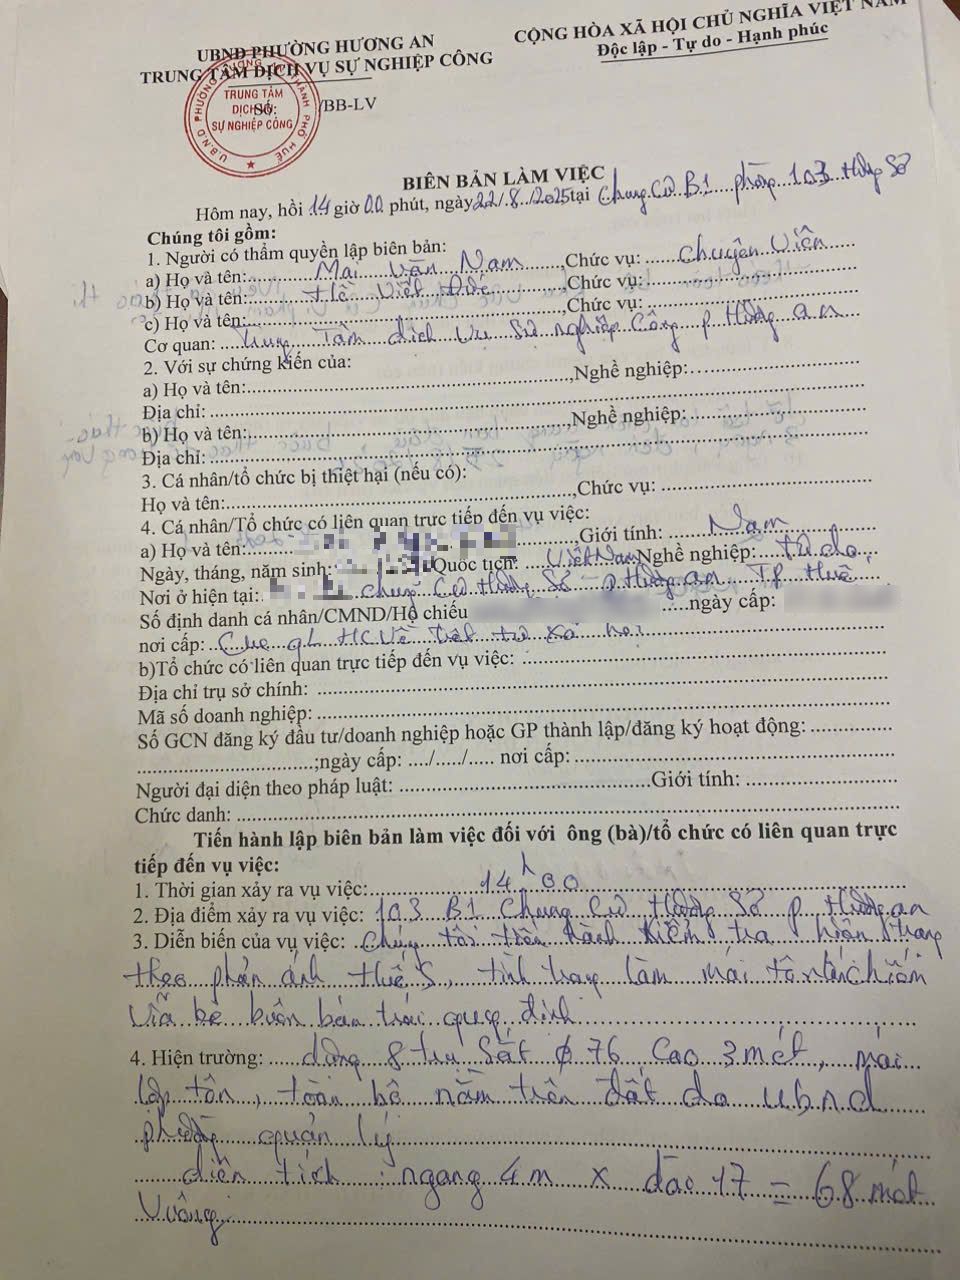 UBND PHƯỜNG HƯƠNG AN
TRUNG TÂM DỊCH VỤ SỰ NGHIỆP CÔNG
CỘNG HÒA XÃ HỘI CHỦ NGHĨA VIỆT NAM
Độc lập - Tự do - Hạnh phúc
Số: /BB-LV
U.B.N.D PHƯỜNG HƯƠNG AN THÀNH PHỐ HUẾ
TRUNG TÂM
DỊCH VỤ
SỰ NGHIỆP CÔNG
BIÊN BẢN LÀM VIỆC
Hôm nay, hồi 14 giờ 00 phút, ngày 22/8/2025 tại Chung Cư B1 phòng 103 Hương Sơ
Chúng tôi gồm:
1. Người có thẩm quyền lập biên bản:
a) Họ và tên: Mai Văn Nam, Chức vụ: Chuyên Viên
b) Họ và tên: Hồ Viết, Chức vụ:
c) Họ và tên:, Chức vụ:
Cơ quan: Trung Tâm dịch Vụ Sự nghiệp Công p Hương an
2. Với sự chứng kiến của:
a) Họ và tên:, Nghề nghiệp:
Địa chỉ:
b) Họ và tên:, Nghề nghiệp:
Địa chỉ:
3. Cá nhân/tổ chức bị thiệt hại (nếu có):
Họ và tên:, Chức vụ:
4. Cá nhân/Tổ chức có liên quan trực tiếp đến vụ việc:
a) Họ và tên:, Giới tính: Nam
Ngày, tháng, năm sinh: Quốc tịch: Việt Nam Nghề nghiệp: Tự do
Nơi ở hiện tại: chung Cư Hương Sơ - p Hương an TP Huế
Số định danh cá nhân/CMND/Hộ chiếu ngày cấp:
nơi cấp: Cục qL HC Về Trật tự xã hội
b)Tổ chức có liên quan trực tiếp đến vụ việc:
Địa chỉ trụ sở chính:
Mã số doanh nghiệp:
Số GCN đăng ký đầu tư/doanh nghiệp hoặc GP thành lập/đăng ký hoạt động:
;ngày cấp: ..../...../..... nơi cấp:
Người đại diện theo pháp luật: Giới tính:
Chức danh:
Tiến hành lập biên bản làm việc đối với ông (bà)/tổ chức có liên quan trực
tiếp đến vụ việc:
1. Thời gian xảy ra vụ việc: 14h00
2. Địa điểm xảy ra vụ việc: 103 B1 Chung Cư Hương Sơ p Hương an
3. Diễn biến của vụ việc: Chúng tôi tiến hành kiểm tra hiện trạng
theo phản ánh Huế S, tình trạng làm mái tôn lấn chiếm
Vĩa hè buôn bán trái quy định
4. Hiện trường: dùng 8 trụ Sắt ø 76 Cao 3 mét, mái
lợp tôn, toàn bộ nằm trên đất do ubnd
phường quản lý
diện tích: ngang 4m x dài 17 = 68 mét
Vuông